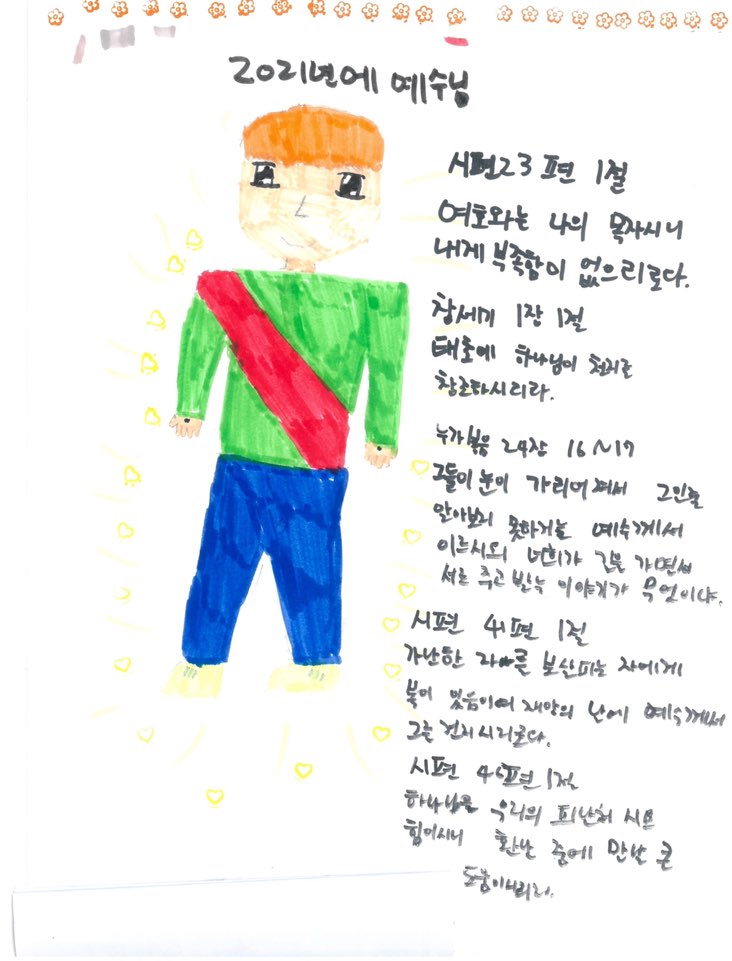 2021년에 예수님
시편23편 1절
여호와는 나의 목자시니
내게 부족함이 없으리로다.
창세기 1장 1절
태초에 하나님이 천지를
창조하시리라.
누가복음 24장 16~17
그들이 눈이 가리어져서 그인줄
알아보지 못하거늘 예수께서
이르시되 너희가 길을 가면서
서로 주고 받는 이야기가 무엇이냐.
시편 41편 1절
가난한 자를 보살피는 자에게
복이 있음이여 재앙의 날에 예수께서
그를 건지시리로다.
시편 46편 1절
하나님은 우리의 피난처 시요
힘이시니 환난 중에 만날 큰